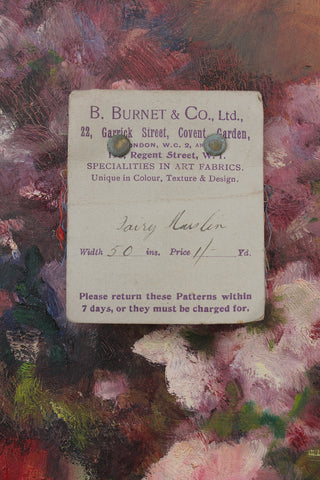 B. BURNET & CO., LTD.,
22, Garrick Street, Covent Garden,
LONDON, W.C. 2, AND
Regent Street, W.1.
SPECIALITIES IN ART FABRICS.
Unique in Colour, Texture & Design.
Fairy Muslin
Width 50 ins. Price 1/- Yd.
Please return these Patterns within
7 days, or they must be charged for.